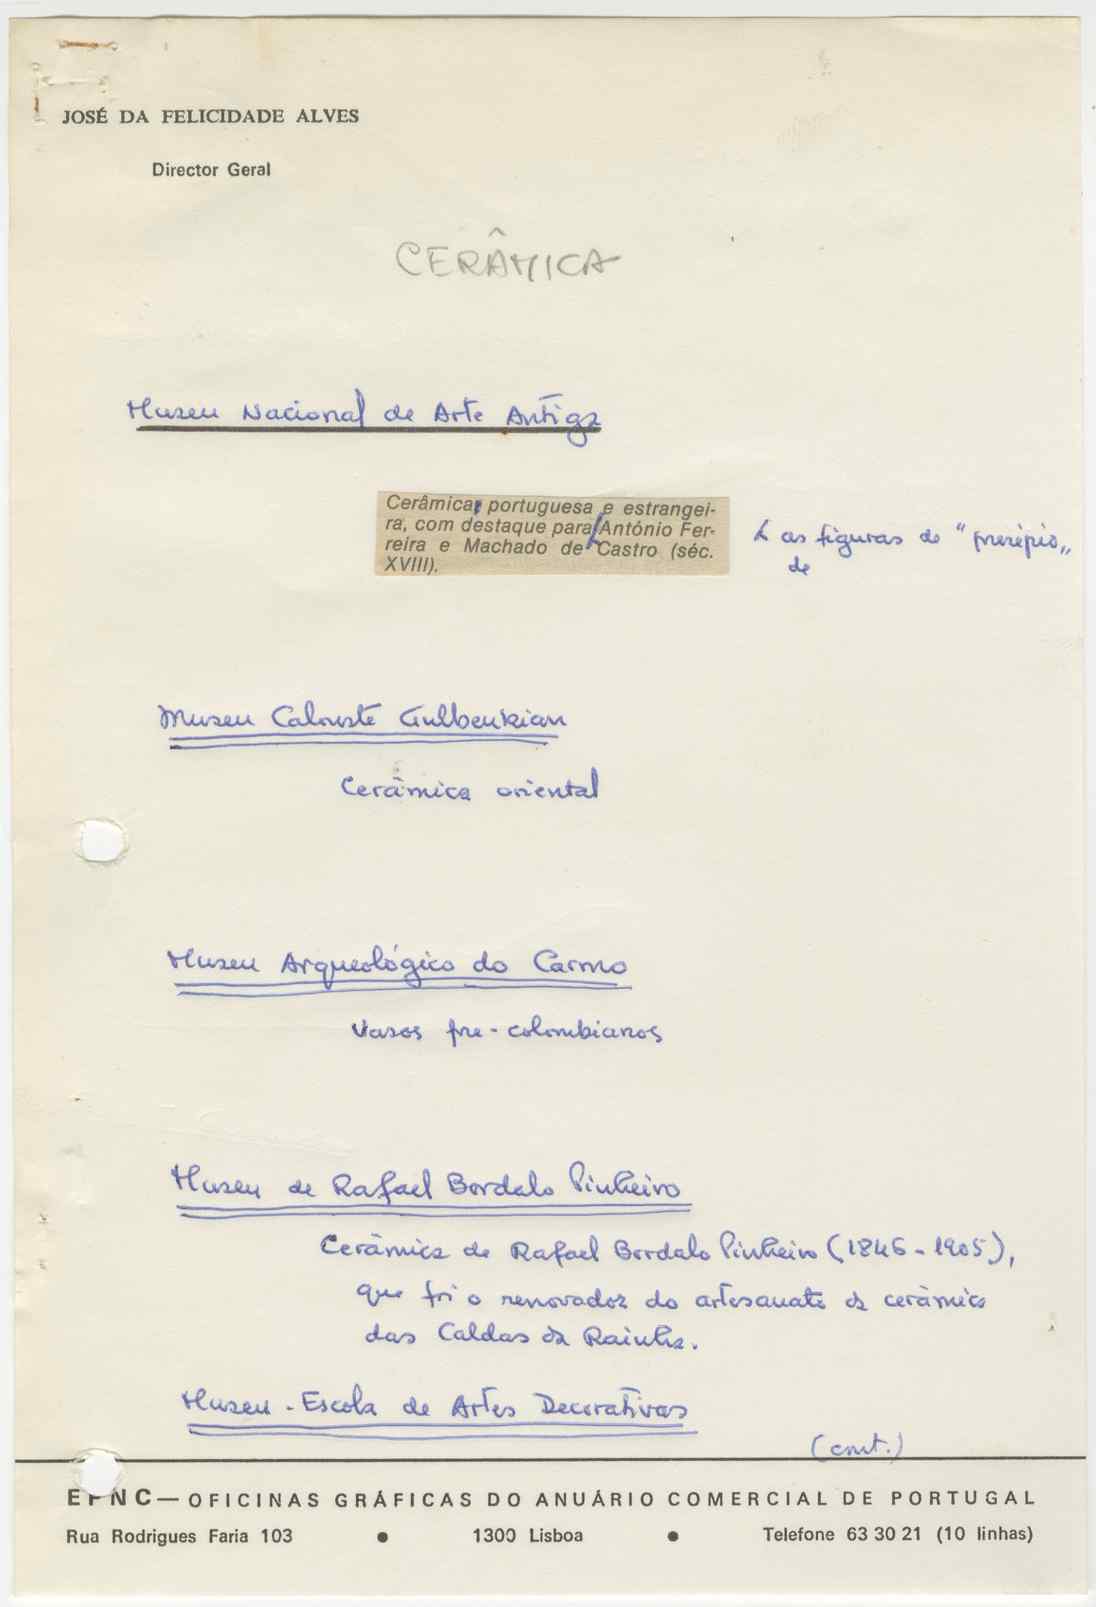 JOSÉ DA FELICIDADE ALVES
Director Geral
CERÂMICA
Museu Nacional de Arte Antiga
Cerâmica, portuguesa e estrangei-
ra, com destaque para António Fer-
reira e Machado de Castro (séc.
XVIII).
as figuras do "presépio„
de
Museu Calouste Gulbenkian
Cerâmica oriental
Museu Arqueológico do Carmo
Vasos pre-colombianos
Museu de Rafael Bordalo Pinheiro
Cerâmica de Rafael Bordalo Pinheiro (1846-1905),
que foi o renovador do artesanato da cerâmica
das Caldas da Rainha.
Museu-Escola de Artes Decorativas
(cont.)
EPNC — OFICINAS GRÁFICAS DO ANUÁRIO COMERCIAL DE PORTUGAL
Rua Rodrigues Faria 103 • 1300 Lisboa • Telefone 63 30 21 (10 linhas)